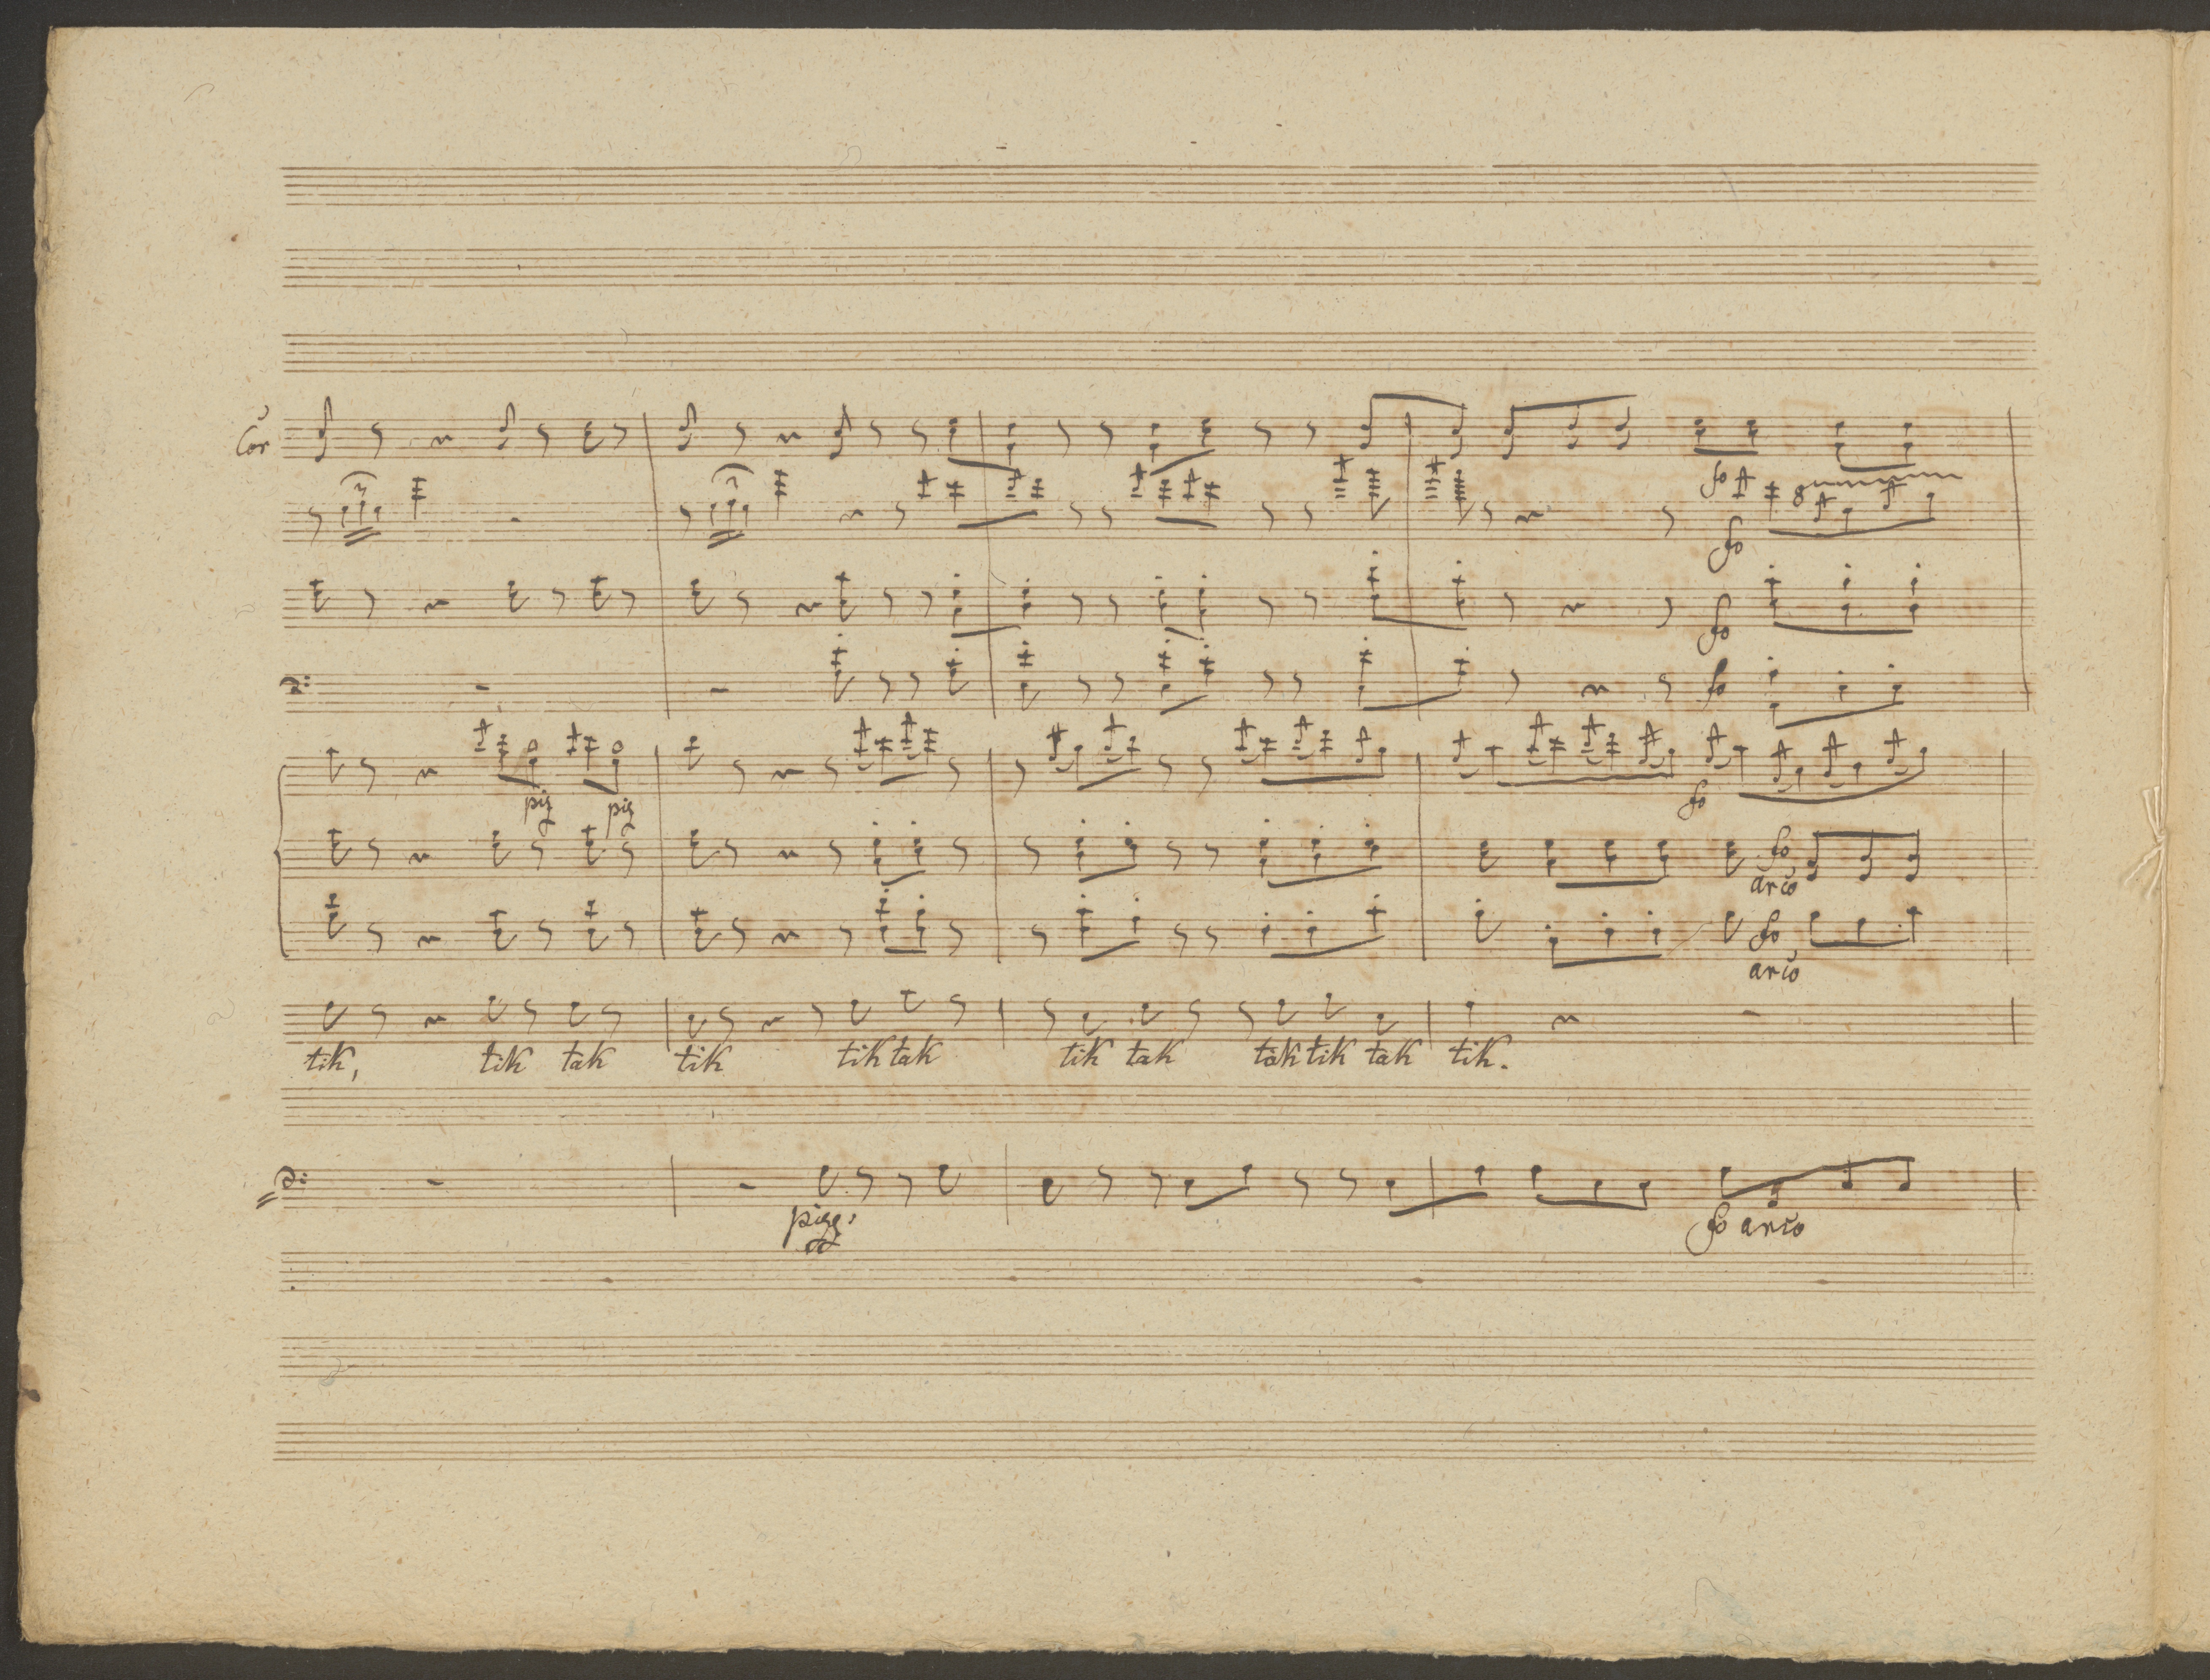 Cor
fo
8
fo
fo
fo
piz piz
fo
fo
arco
fo
arco
tik, tik tak tik tik tak tik tak tak tik tak tik.
pizz.
fo arco